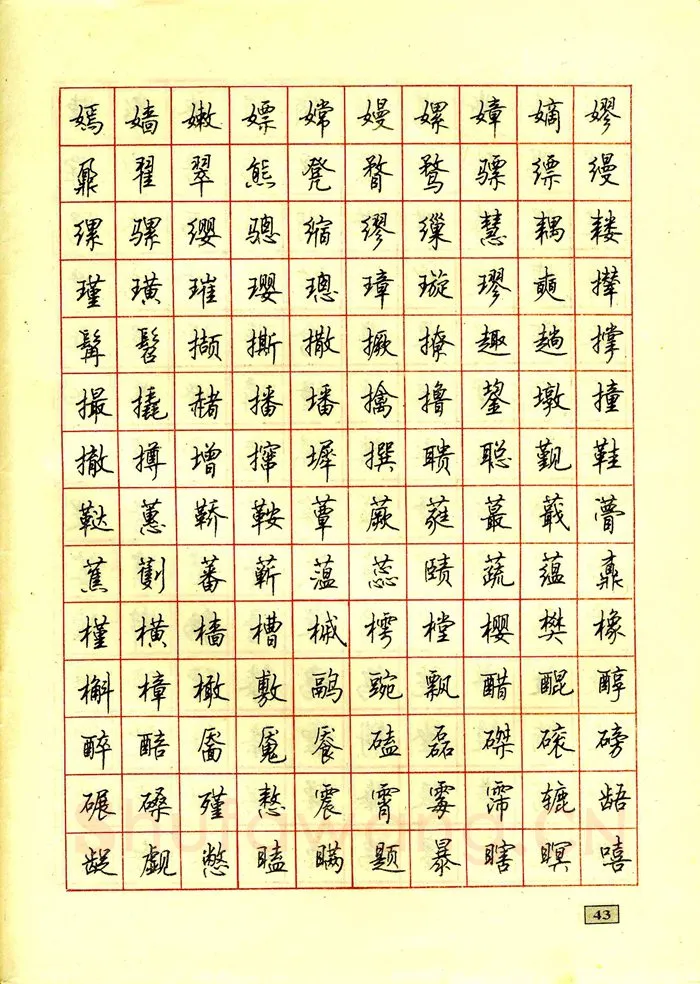 嫣 嫱 嫩 嫖 嫦 嫚 嫘 嫜 嫡 嫪
鼐 翟 翠 熊 凳 瞀 鹜 骠 缥 缦
缧 骡 缨 骢 缩 缪 缫 慧 耦 耧
瑾 璜 璀 璎 璁 璋 璇 璆 奭 撵
髯 髫 撷 撕 撒 撅 撩 趣 趟 撑
撮 撬 赭 播 墦 擒 撸 鋆 墩 撞
撤 撙 增 撺 墀 撰 聩 聪 觐 鞋
鞑 蕙 鞒 鞍 蕈 蕨 蕤 蕞 蕺 瞢
蕉 劐 蕃 蕲 蕰 蕊 赜 蔬 蕴 鼒
槿 横 樯 槽 槭 樗 樘 樱 樊 橡
槲 樟 橄 敷 鹝 豌 飘 醋 醌 醇
醉 醅 靥 魇 餍 磕 磊 磔 磙 磅
碾 磉 殣 慭 震 霄 霉 霈 辘 龉
龊 觑 憋 瞌 瞒 题 暴 瞎 瞑 嘻
43